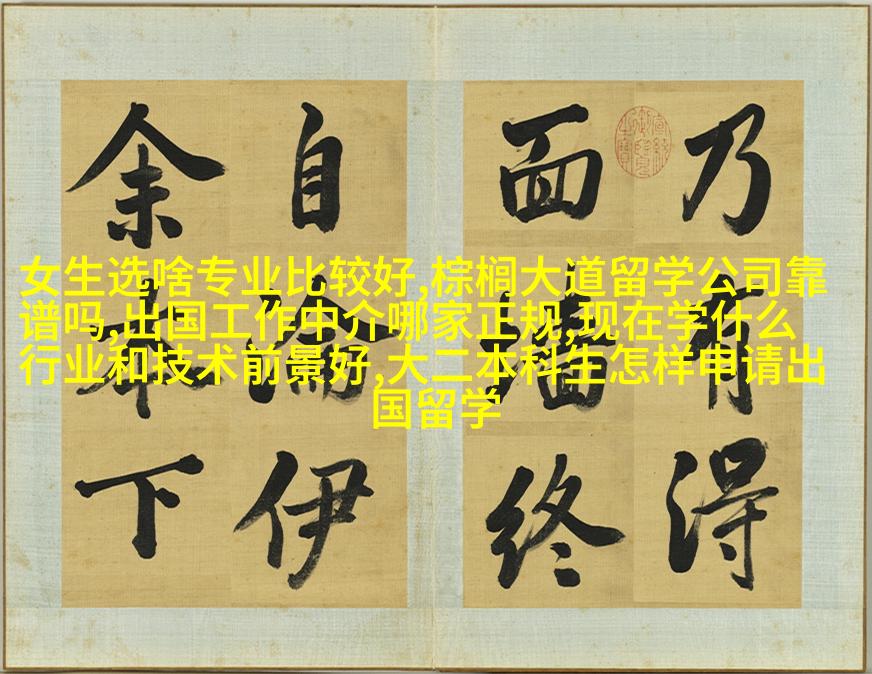 女生选啥专业比较好,棕榈大道留学公司靠
谱吗,出国工作中介哪家正规,现在学什么
行业和技术前景好,大二本科生怎样申请出
国留学
乃有得
面終
自伊
余下